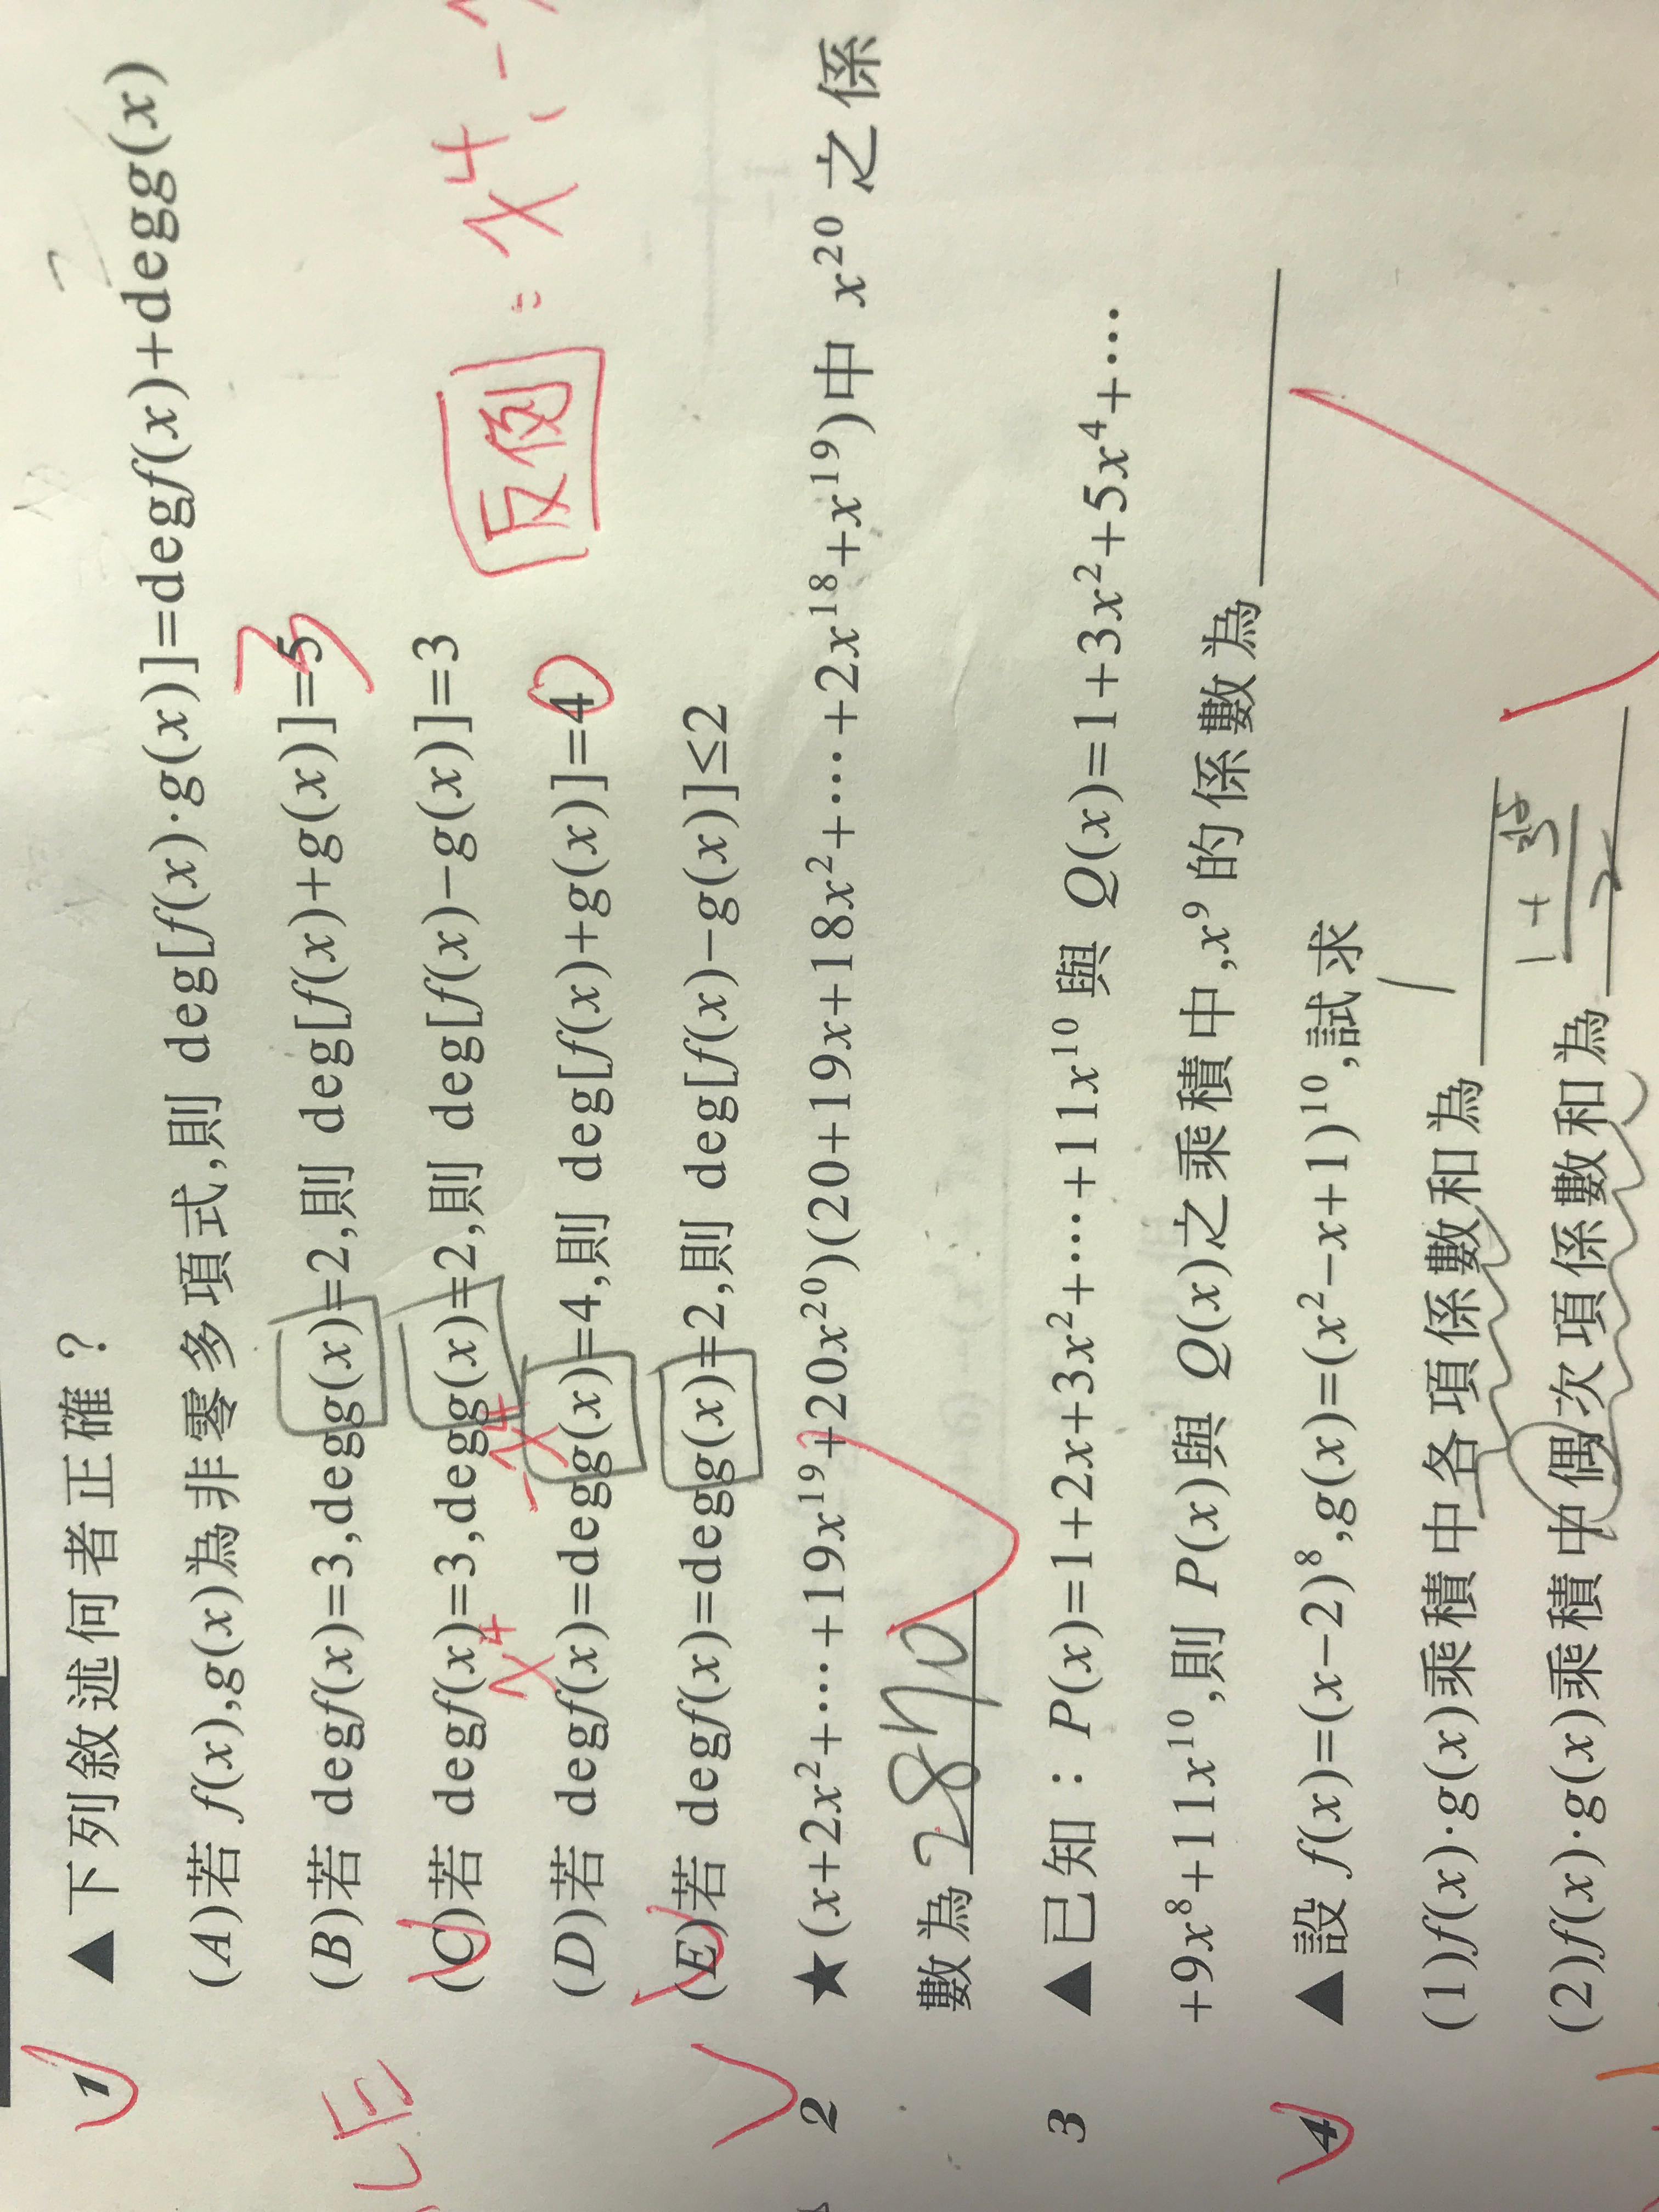 1 ▲下列敘述何者正確？
(A)若 f(x),g(x)為非零多項式,則 deg[f(x)·g(x)]=degf(x)+degg(x)
(B)若 degf(x)=3,degg(x)=2,則 deg[f(x)+g(x)]=5
3
(C)若 degf(x)=3,degg(x)=2,則 deg[f(x)−g(x)]=3
x⁴ −x⁴
反例 : x⁴, −
(D)若 degf(x)=degg(x)=4,則 deg[f(x)+g(x)]=4
(E)若 degf(x)=degg(x)=2,則 deg[f(x)−g(x)]≤2
CE
2 ★(x+2x²+⋯+19x¹⁹+20x²⁰)(20+19x+18x²+⋯+2x¹⁸+x¹⁹)中 x²⁰ 之係
數為 2870
3 ▲已知：P(x)=1+2x+3x²+⋯+11x¹⁰ 與 Q(x)=1+3x²+5x⁴+⋯
+9x⁸+11x¹⁰,則 P(x)與 Q(x)之乘積中,x⁹ 的係數為
4 ▲設 f(x)=(x−2)⁸,g(x)=(x²−x+1)¹⁰,試求
(1)f(x)·g(x)乘積中各項係數和為 1
(2)f(x)·g(x)乘積中偶次項係數和為